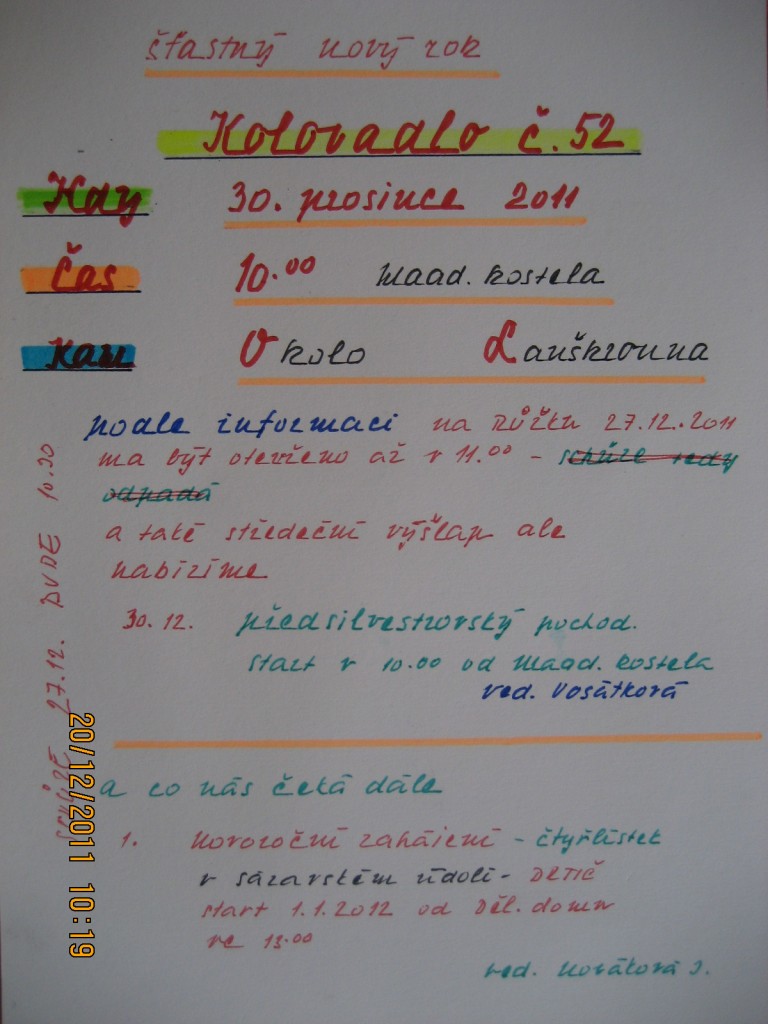 šťastný nový rok
Kolovadlo č. 52
Kdy 30. prosince 2011
Čas 10.00 Maad. kostela
Kam Okolo Lanškrouna
podle informaci na Růžku 27.12.2011
ma být otevřeno až v 11.00 - schůze tedy
odpadá
a také středeční výšlap ale
nabizíme
30.12. předsilvestrovský pochod.
start v 10.00 od Maad. kostela
ved. Vosátková
schůze 27.12. BUDE 10.30
a co nás čeká dále
1. Novoroční zahájení - čtyřlístek
v sázavském údolí - DETIČ
start 1.1.2012 od Děl. domu
ve 13.00
ved. Nováková J.
20/12/2011 10:19